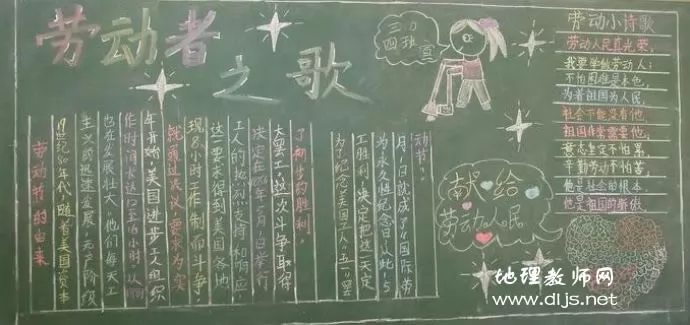 劳动者之歌
四班
劳动节的由来
19世纪80年代,随着美国资本
主义的迅速发展,无产阶级
也在发展壮大。他们每天工
作时间长达12至16小时。从
年开始,美国进步工人组织
就通过决议,要求为实
现8小时工作制而斗争,
这一要求得到美国各地
工人的热烈支持和响应,
决定在1886年5月1日举行
大罢工,这次斗争取得
了初步的胜利。
为了纪念美国工人"五一"罢
工胜利,决定把这一天定
为永久性纪念日。从此,5
月1日就成了"国际劳
动节"。
献给
劳动人民
劳动小诗歌
劳动人民真光荣,
我要学做劳动人;
不怕困难是本色,
为着祖国为人民,
社会不能没有他,
祖国需要他,
意志坚定不怕累,
辛勤劳动不怕苦,
他是社会的根本,
他是祖国的骄傲。
地理教师网
www.dljs.net